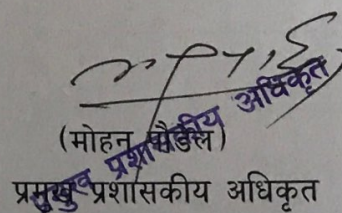 (मोहन पौडेल)
प्रमुख प्रशासकीय अधिकृत
प्रमुख प्रशासकीय अधिकृत